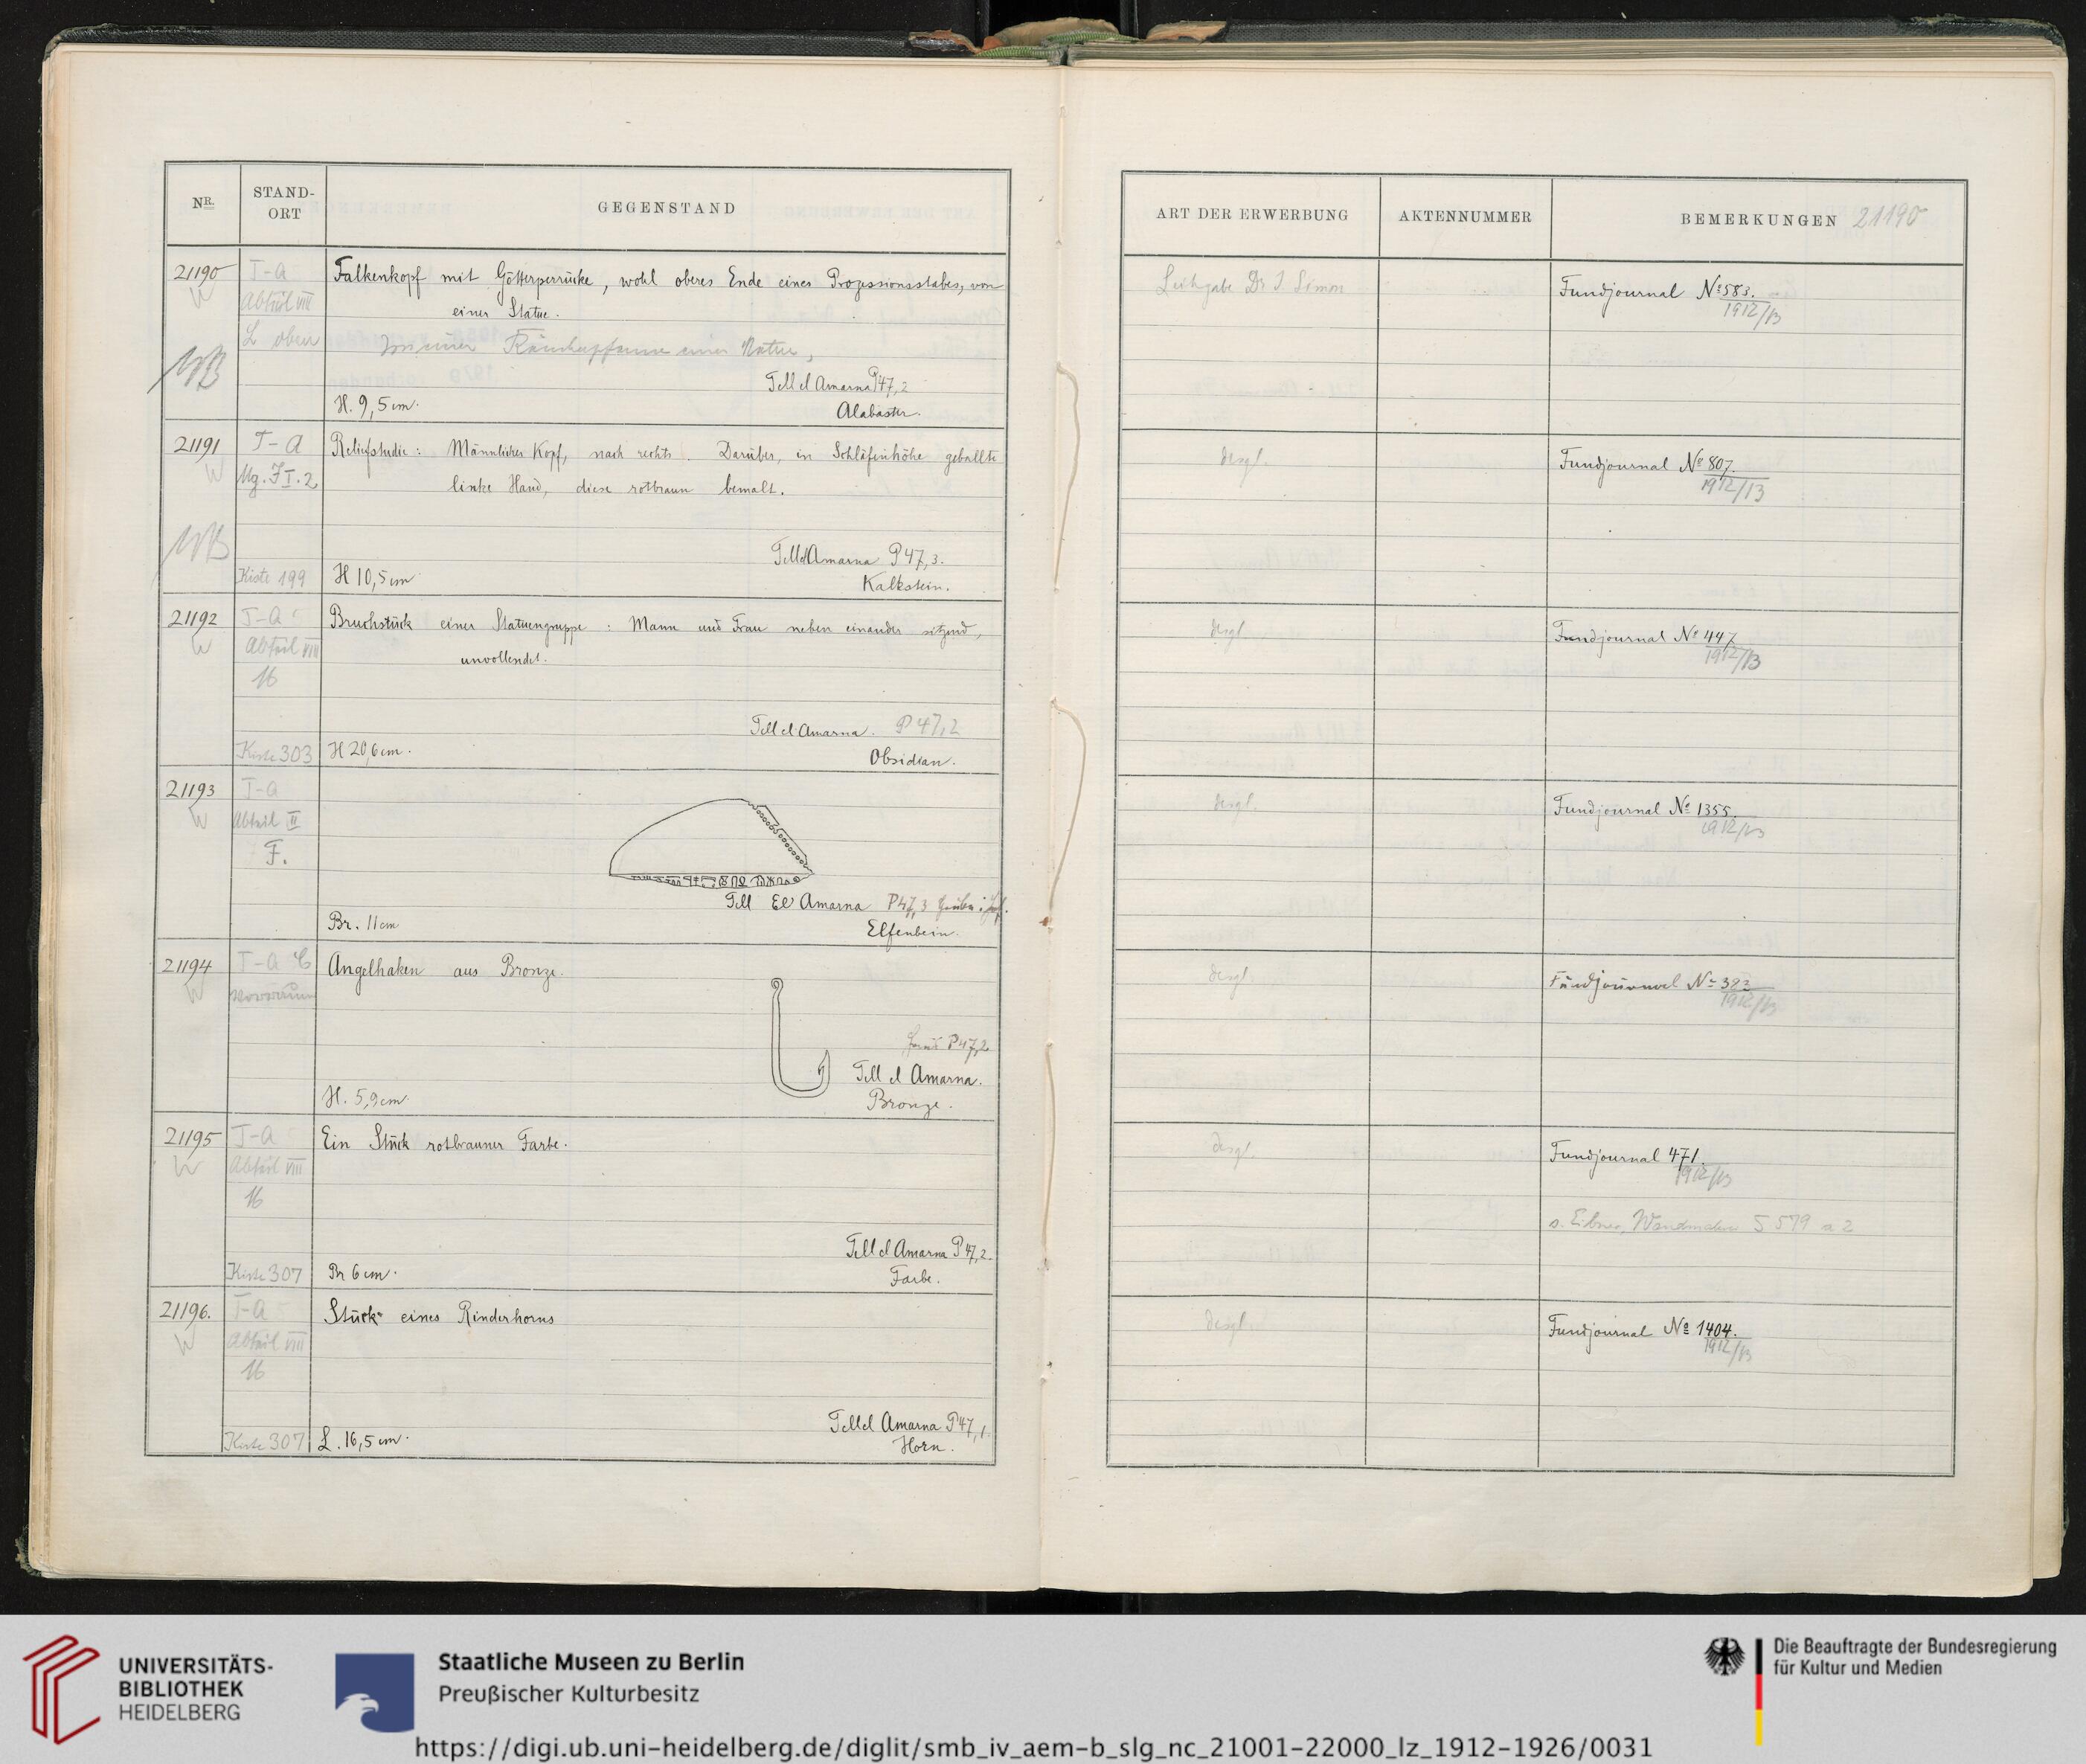 NR.
STAND-
ORT
GEGENSTAND
21190
T-A
Abteil VIII
L oben
W
Falkenkopf mit Götterperrücke, wohl oberes Ende eines Prozessionsstabes, von
einer Statue.
einer
Tell el Amarna P47,2
H. 9,5 cm.
Alabaster.
21191
T-A
W
Mg. I.2
Reliefstudie: Männlicher Kopf, nach rechts. Darüber, in Schläfenhöhe geballte
linke Hand, diese rotbraun bemalt.
Tell el Amarna P47,3.
Kiste 199
H 10,5 cm
Kalkstein.
21192
T-A
W
Abteil VIII
16
Bruchstück einer Statuengruppe: Mann und Frau neben einander sitzend,
unvollendet.
Tell el Amarna. P47,2
Kiste 303
H 20,6 cm.
Obsidian.
21193
T-A
W
Abteil II
F.
Tell El Amarna P47,3
Br. 11 cm
Elfenbein.
21194
T-A
W
Angelhaken aus Bronze.
P47,2
Tell el Amarna.
H. 5,9 cm.
Bronze.
21195
T-A
W
Abteil VIII
16
Ein Stück rotbrauner Farbe.
Tell el Amarna P47,2.
Kiste 307
Br 6 cm.
Farbe.
21196.
T-A
W
Abteil VIII
16
Stück eines Rinderhorns
Tell el Amarna P47,1.
Kiste 307
L. 16,5 cm.
Horn.
ART DER ERWERBUNG
AKTENNUMMER
BEMERKUNGEN 21190
Leihgabe Dr J. Simon
Fundjournal No 583.
1912/13
desgl.
Fundjournal No 807.
1912/13
desgl.
Fundjournal No 447
1912/13
desgl.
Fundjournal No 1355.
1912/13
desgl.
Fundjournal No
1912/13
desgl.
Fundjournal 471.
1912/13
s. Eibner, Wandmalerei S 579 a 2
desgl.
Fundjournal No 1404.
1912/13
UNIVERSITÄTS-
BIBLIOTHEK
HEIDELBERG
Staatliche Museen zu Berlin
Preußischer Kulturbesitz
Die Beauftragte der Bundesregierung
für Kultur und Medien
https://digi.ub.uni-heidelberg.de/diglit/smb_iv_aem-b_slg_nc_21001-22000_lz_1912-1926/0031